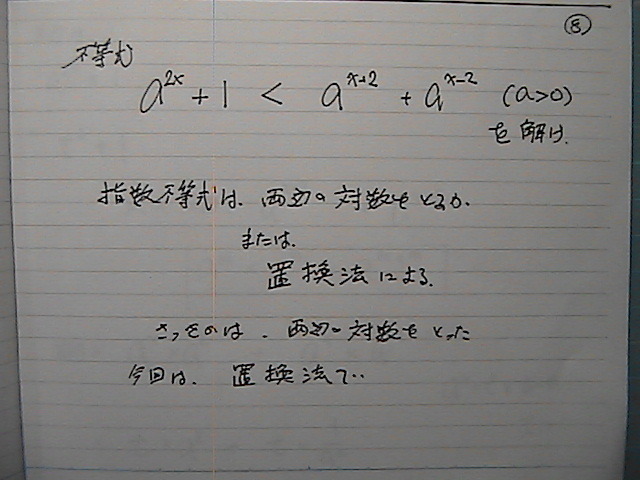 ⑧
不等式
a^{2x} + 1 < a^{x+2} + a^{x-2} (a>0)
を解け.
指数不等式は、両辺の対数をとるか.
または.
置換法による.
さっきのは、両辺の対数をとった
今回は、置換法で…